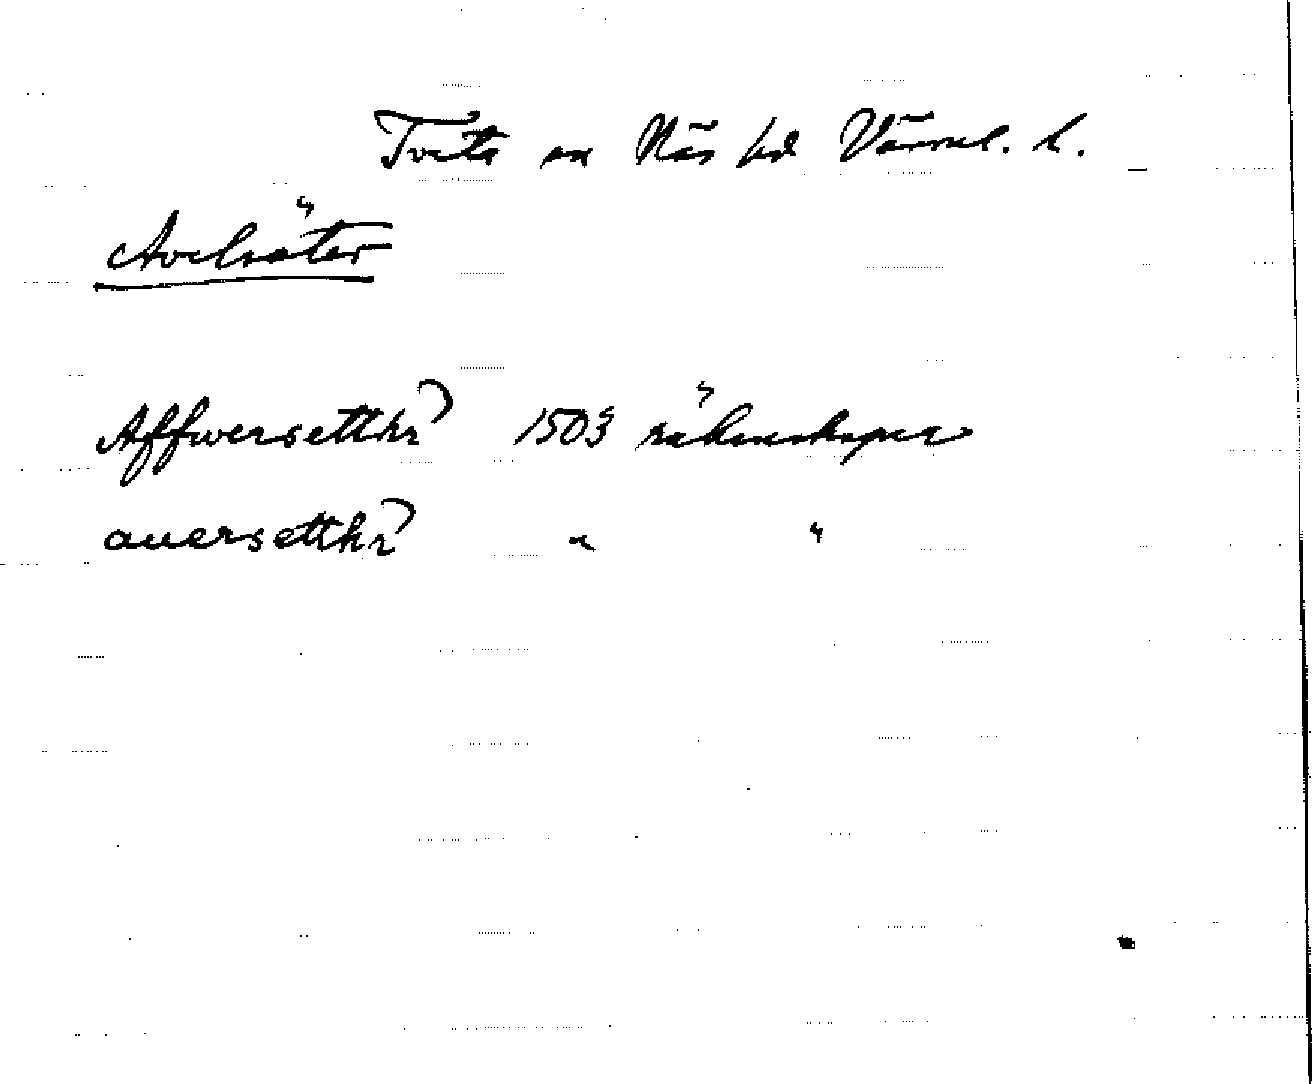 Tveta sn Näs hd Värml. l.
Avelsäter
Affwersetthr 1503 räkenskaper
auersetthr " "